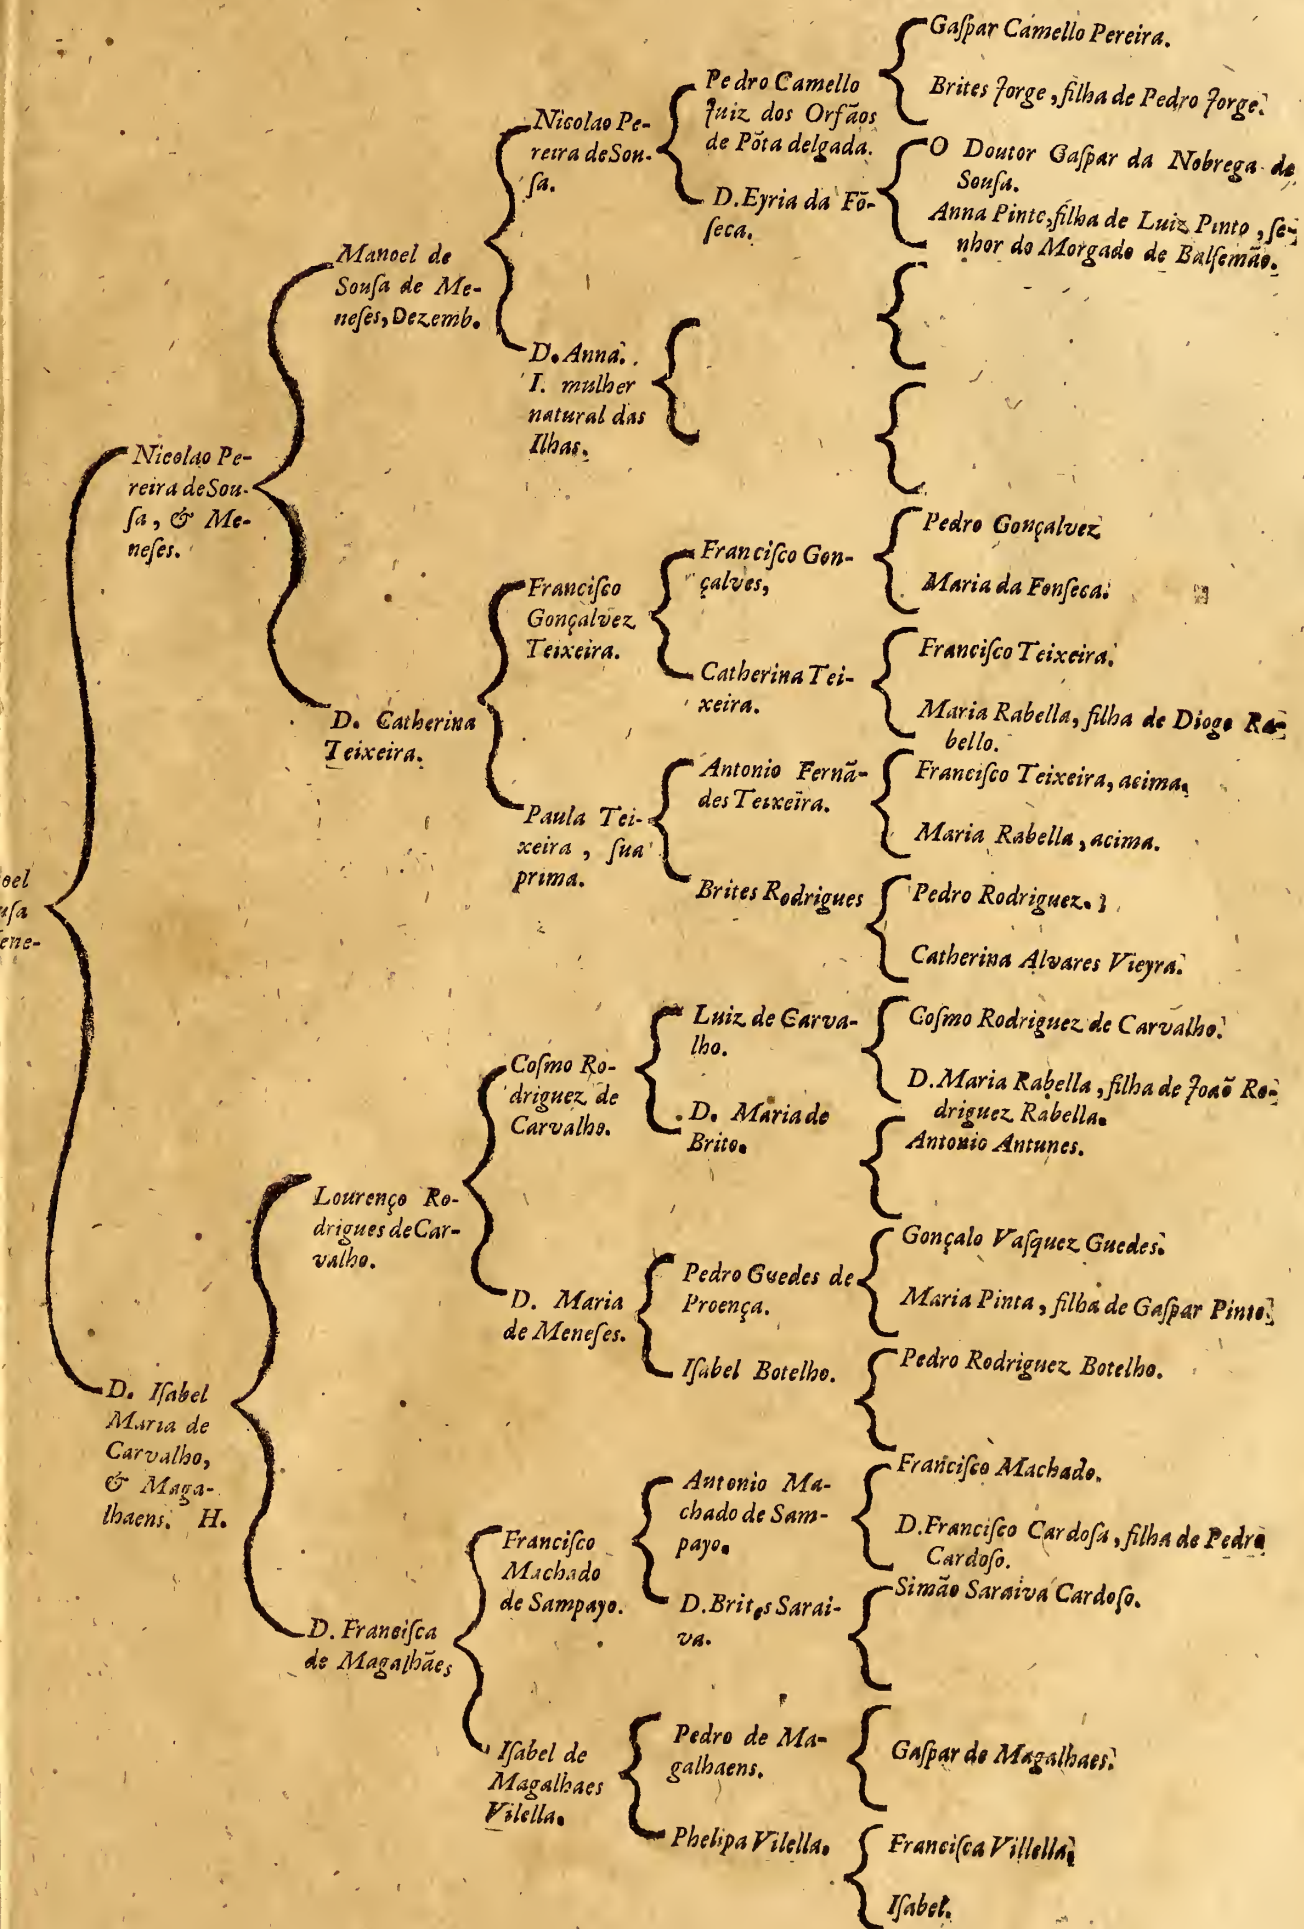 oel
uſa
ene-
Nicolao Pe-
reira de Sou-
ſa, & Me-
neſes.
D. Iſabel
Maria de
Carvalho,
& Maga-
lhaens. H.
Manoel de
Souſa de Me-
neſes, Dezemb.
D. Catherina
Teixeira.
Lourenço Ro-
drigues de Car-
valho.
D. Franciſca
de Magalhães
Nicolao Pe-
reira de Sou-
ſa.
D. Anna.
I. mulher
natural das
Ilhas.
Franciſco
Gonçalvez
Teixeira.
Paula Tei-
xeira, ſua
prima.
Coſmo Ro-
driguez de
Carvalho.
D. Maria
de Meneſes.
Franciſco
Machado
de Sampayo.
Iſabel de
Magalhaes
Vilella.
Pedro Camello
Juiz dos Orfãos
de Põta delgada.
D. Eyria da Fõ-
ſeca.
Franciſco Gon-
çalves,
Catherina Tei-
xeira.
Antonio Fernã-
des Teixeira.
Brites Rodrigues
Luiz de Carva-
lho.
D. Maria de
Brito.
Pedro Guedes de
Proença.
Iſabel Botelho.
Antonio Ma-
chado de Sam-
payo.
D. Brites Sarai-
va.
Pedro de Ma-
galhaens.
Phelipa Vilella.
Gaſpar Camello Pereira.
Brites Jorge, filha de Pedro Jorge.
O Doutor Gaſpar da Nobrega de
Souſa.
Anna Pinto, filha de Luiz Pinto, ſe-
nhor do Morgado de Balſemão.
Pedro Gonçalvez
Maria da Fonſeca.
Franciſco Teixeira.
Maria Rabella, filha de Diogo Ra-
bello.
Franciſco Teixeira, acima.
Maria Rabella, acima.
Pedro Rodriguez.
Catherina Alvares Vieyra.
Coſmo Rodriguez de Carvalho.
D. Maria Rabella, filha de Joaõ Ro-
driguez Rabella.
Antonio Antunes.
Gonçalo Vaſquez Guedes.
Maria Pinta, filha de Gaſpar Pinto.
Pedro Rodriguez Botelho.
Franciſco Machado.
D. Franciſco Cardoſa, filha de Pedro
Cardoſo.
Simão Saraiva Cardoſo.
Gaſpar de Magalhaes.
Franciſca Villella.
Iſabel.